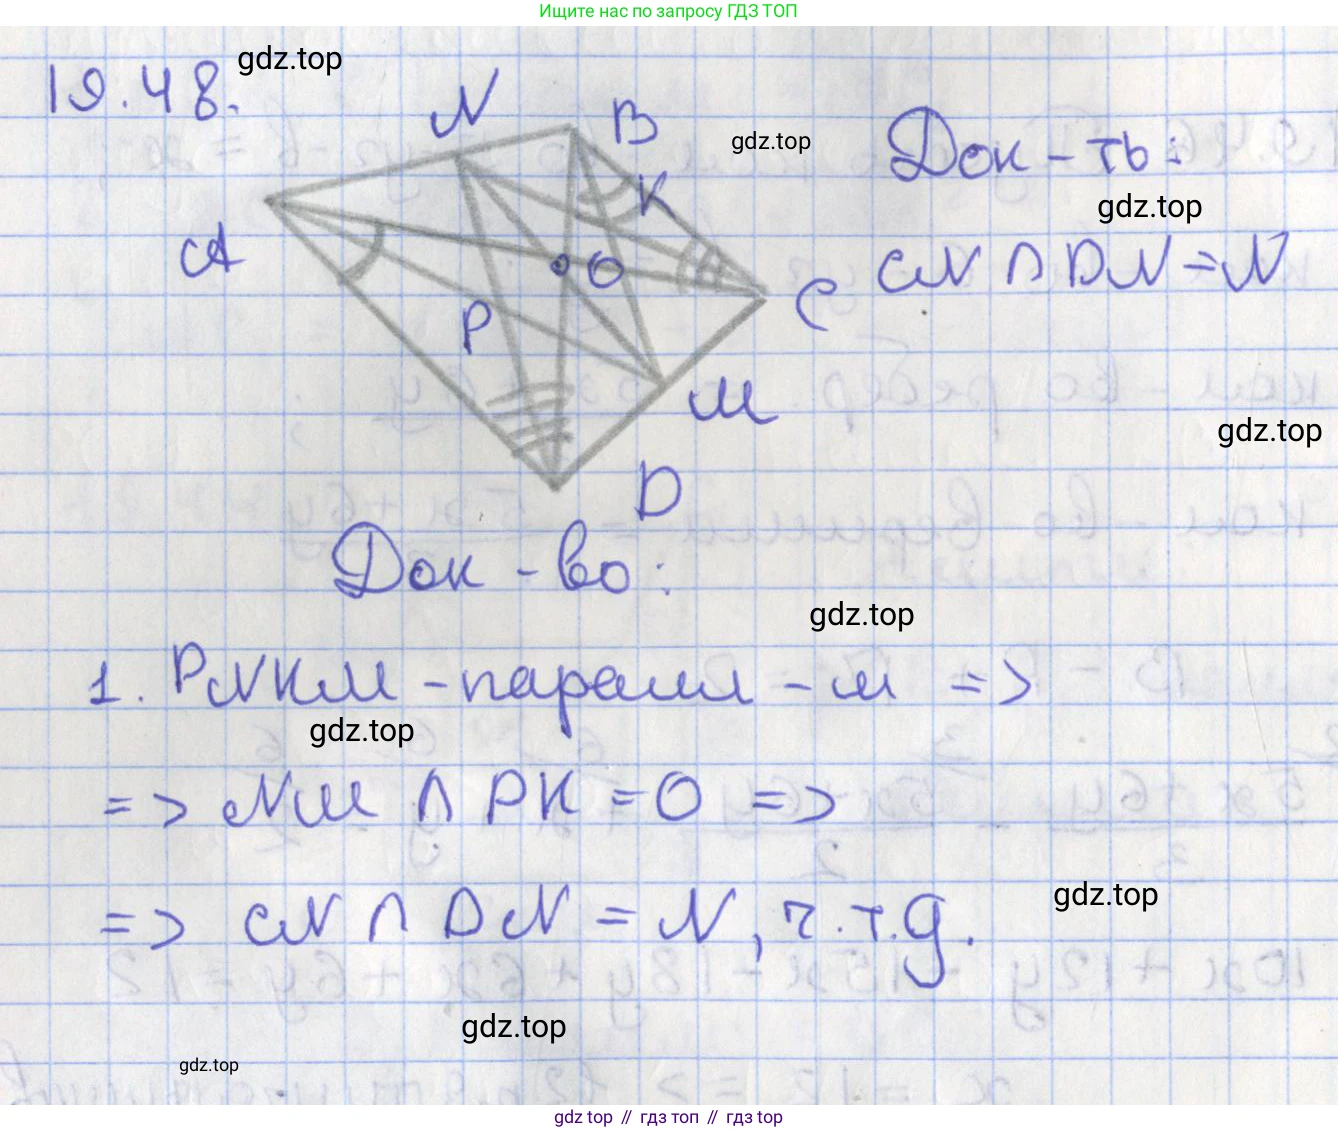 Ищите нас по запросу ГДЗ ТОП
gdz.top
19.48.
N
B
gdz.top
Док-ть:
K
gdz.top
A
O
C
CN ∩ DN = N
P
M
gdz.top
D
Док-во:
gdz.top
1. PNKM - паралл-м =>
gdz.top
=> NM ∩ PK = O =>
gdz.top
=> CN ∩ DN = N, ч.т.д.
gdz.top
gdz.top
gdz top // гдз топ // гдз top